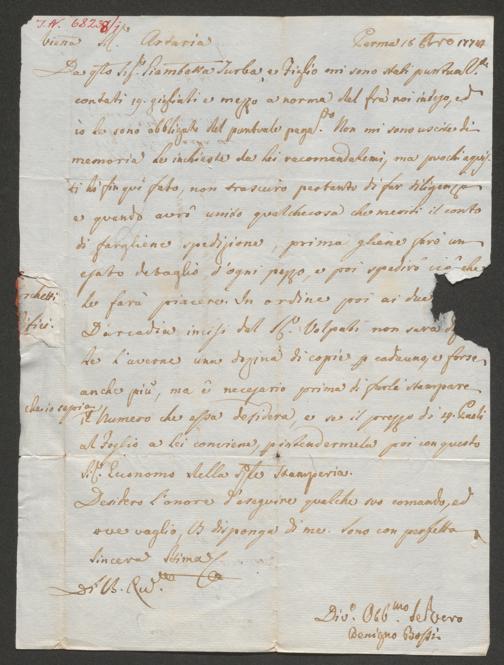 I.N. 68238/1
Viena Sr. Artaria Parma 16
Da qto Sigr. Giambatta Turba, e Figlio mi sono stati puntualte
contati 19. gigliati e mezzo a norma del frà noi inteso, ed
io le sono obbligato del puntuale pagamto. Non mi sono uscite di
memoria le inchieste da lei recomandatemi, ma pochi aquis
ti hò fin quì fato, non trascuro pertanto di far diligenza
e quando avrò unito qualchecosa che meriti il conto
di fargliene spedizione, prima gliene farò un
esato detaglio d'ogni pezzo, e poi spedirò ciò che
le farà piacere. In ordine poi ai due
D'arcadia incisi del Sr. Volpati non sarà
te l'averne una dozina di copie p cadauno, e forse
anche più, ma è necesario prima di farle stampare
che io sapia
il Numero che essa desidera, e se il prezzo di 4. Paoli
al foglio a lei conviene, p intendermela poi con questo
Sigr. Economo della Rle Stamperia.
Desidero l'onore d'eseguire qualche suo comando, ed
ove vaglio, VS disponga di me. Sono con perfetta
sincera stima
Di VS. Rivma
Divo. Obbmo Servro
Benigno Bossi